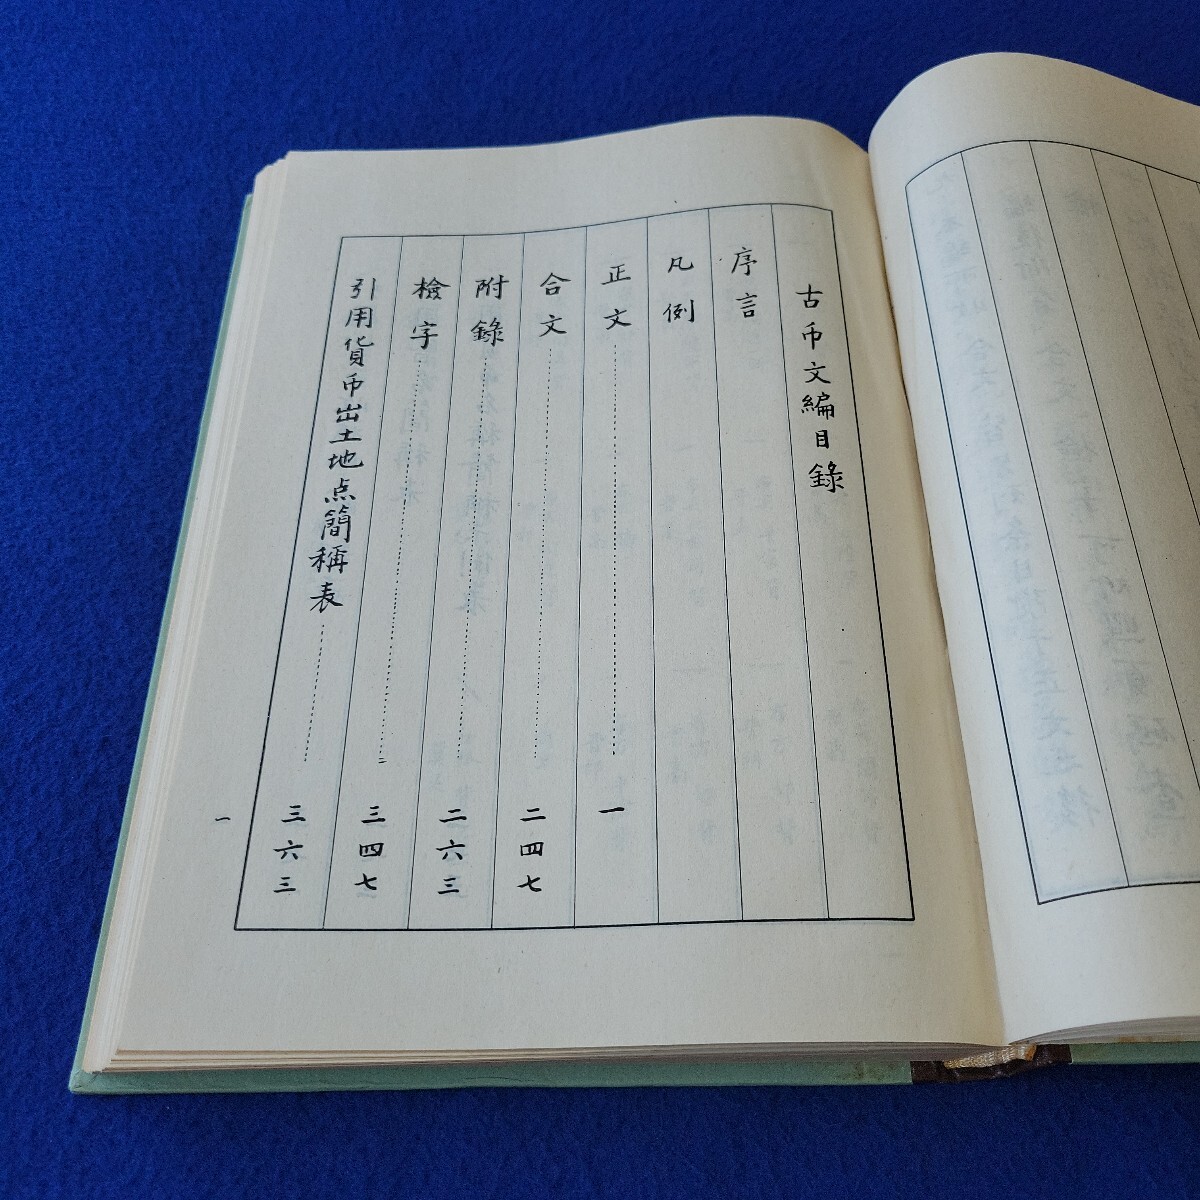 古币文編目錄
序言
凡例
正文………一
合文………二四七
附錄………二六三
檢字………三四七
引用貨币出土地点簡稱表………三六三
一